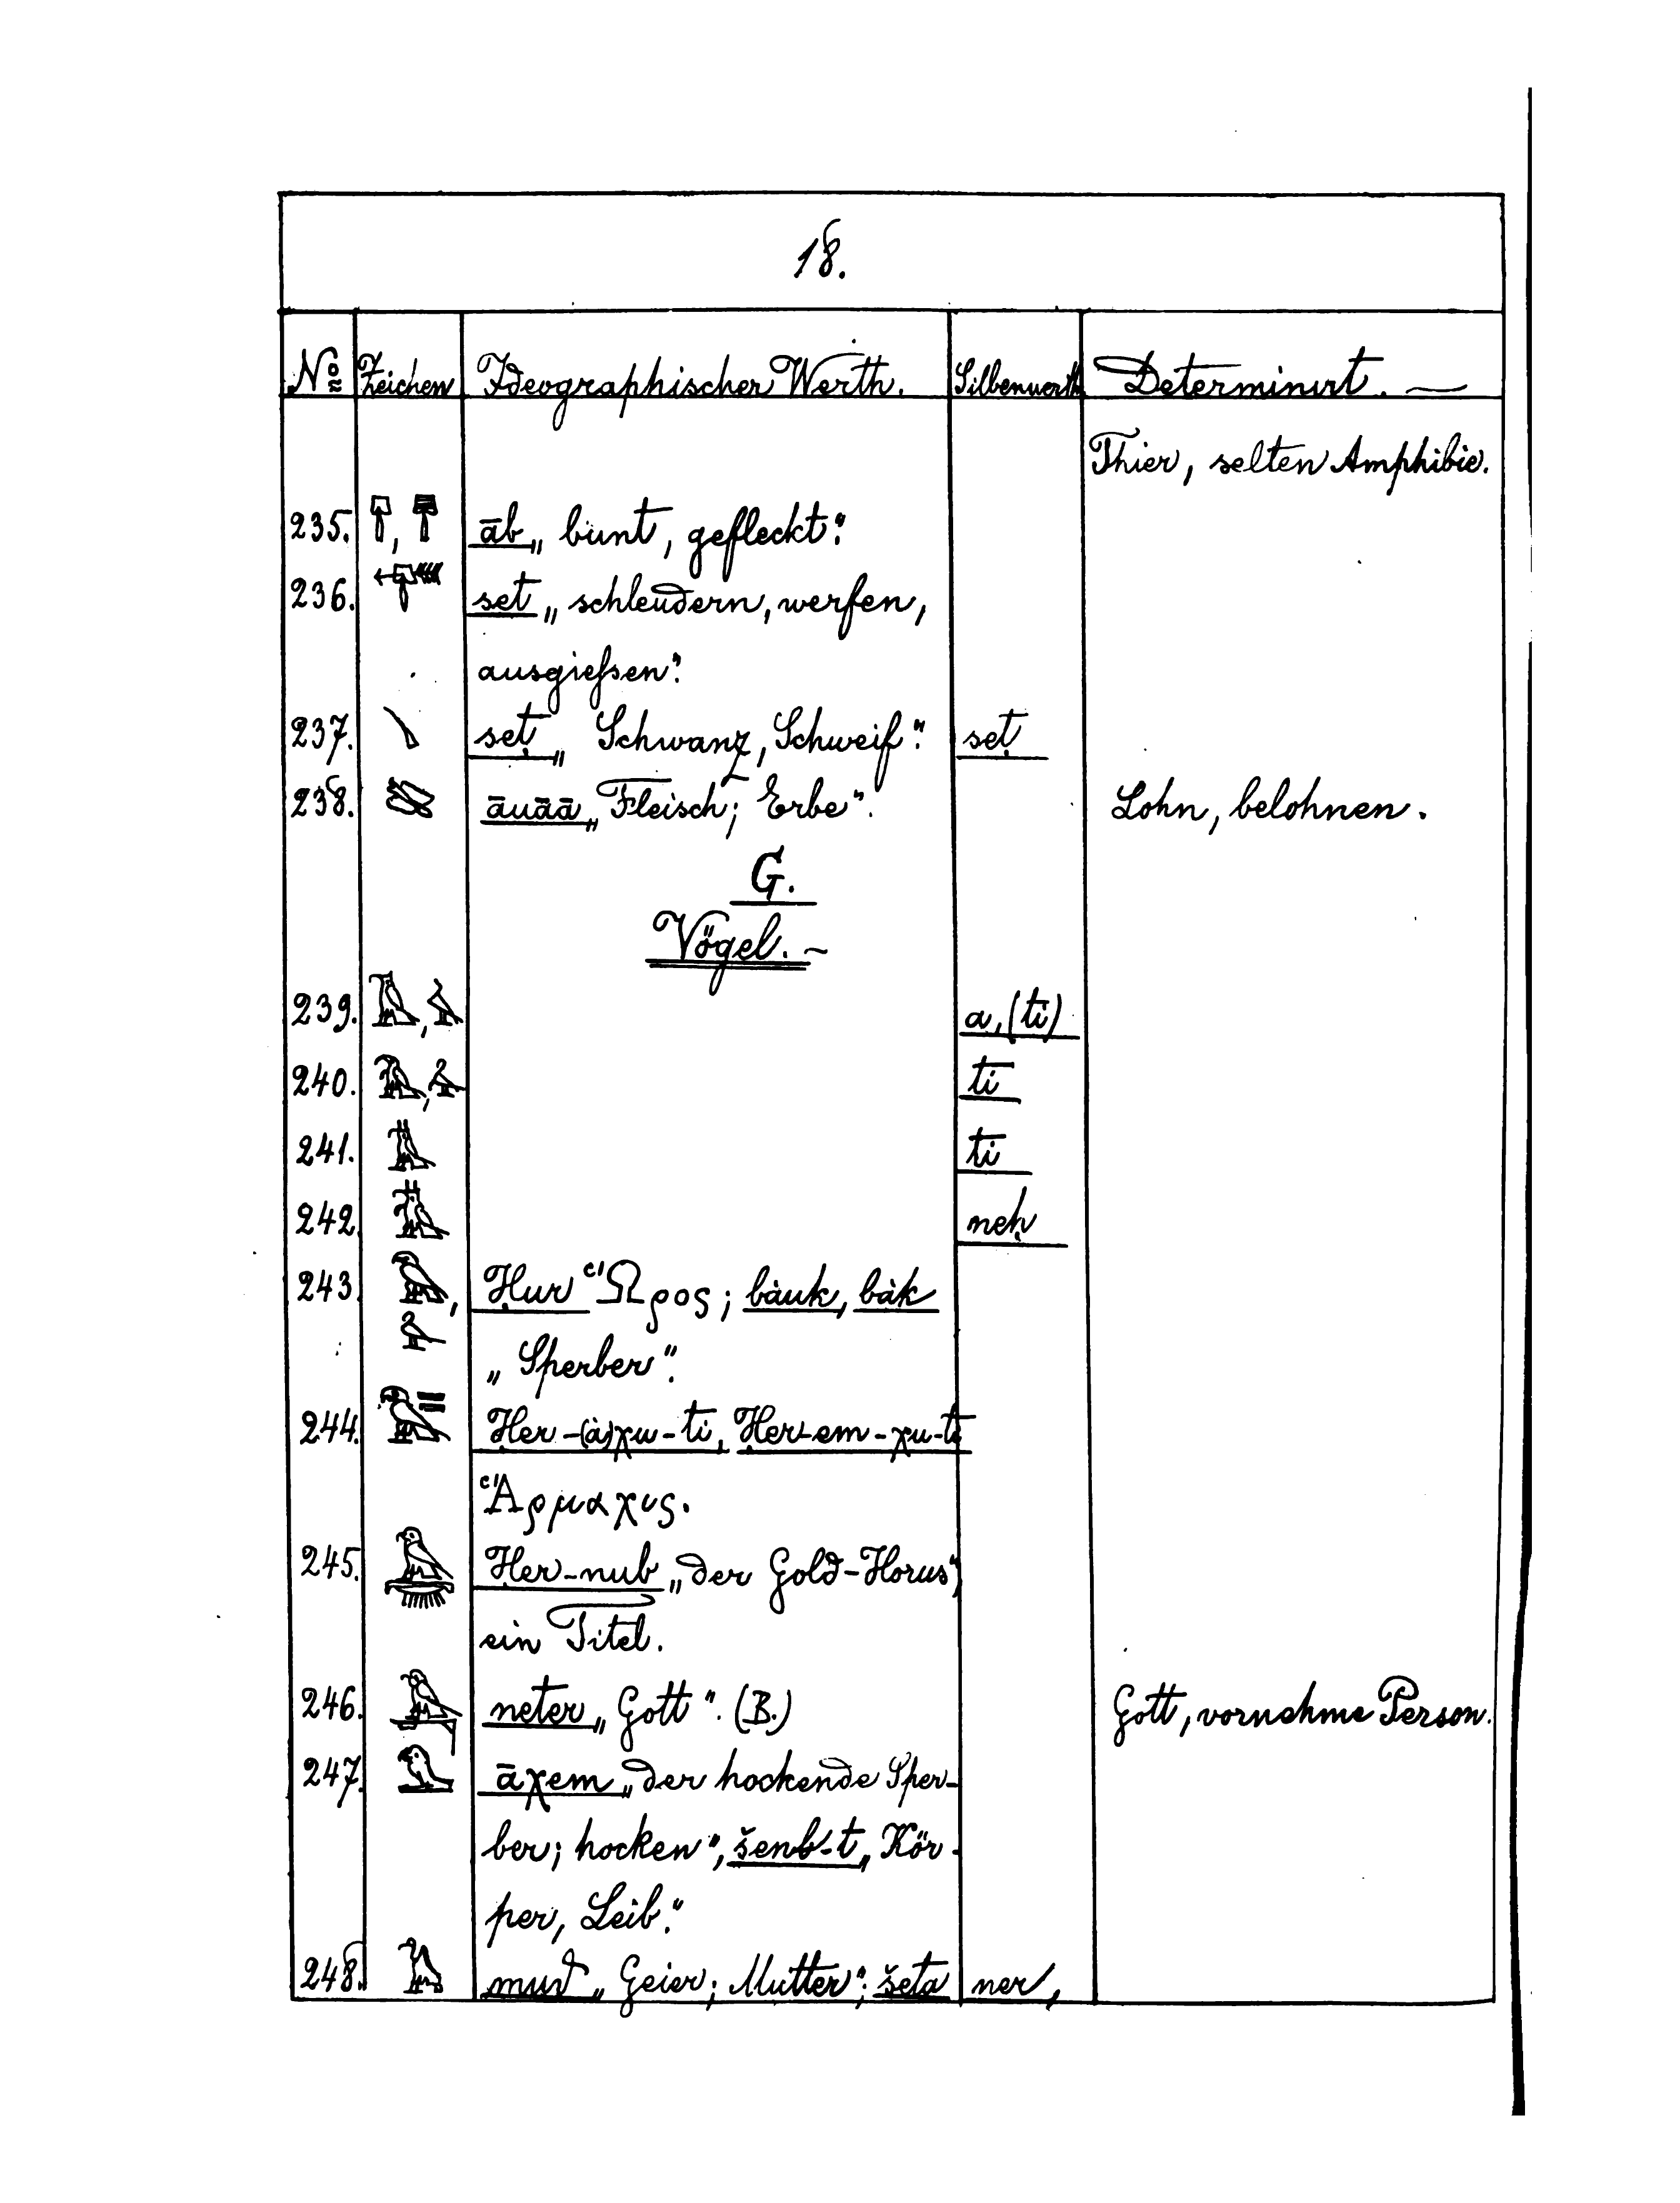 18.
No Zeichen Ideographischer Werth. Silbenwerth Determinirt. —
Thier, selten Amphibie.
235. āb „bunt, gefleckt".
236. set „schleudern, werfen,
ausgießen".
237. seṭ „Schwanz, Schweif". seṭ
238. āuāā „Fleisch; Erbe". Lohn, belohnen.
G.
Vögel. ~
239. a, (ti)
240. ti
241. ti
242. neḥ
243. Ḥur Ὧρος; bàuk, bàk
„Sperber".
244. Ḥer-(à)χu-ti, Ḥer-em-χu-ti
Ἅρμαχυς.
245. Ḥer-nub „der Gold-Horus",
ein Titel.
246. neter „Gott". (B.) Gott, vornehme Person.
247. āχem „der hockende Sper-
ber; hocken", šenb-t „Kör-
per, Leib".
248. mut „Geier; Mutter"; šeta ner,